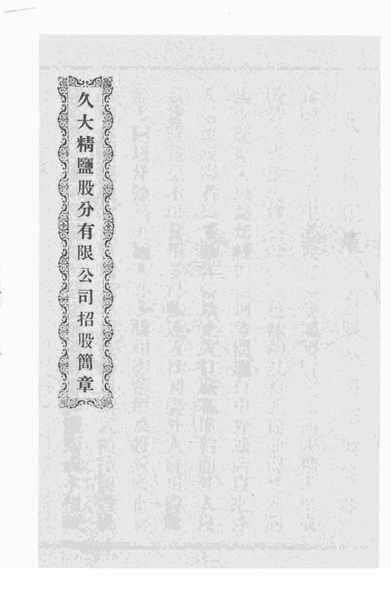 久大精鹽股分有限公司招股簡章